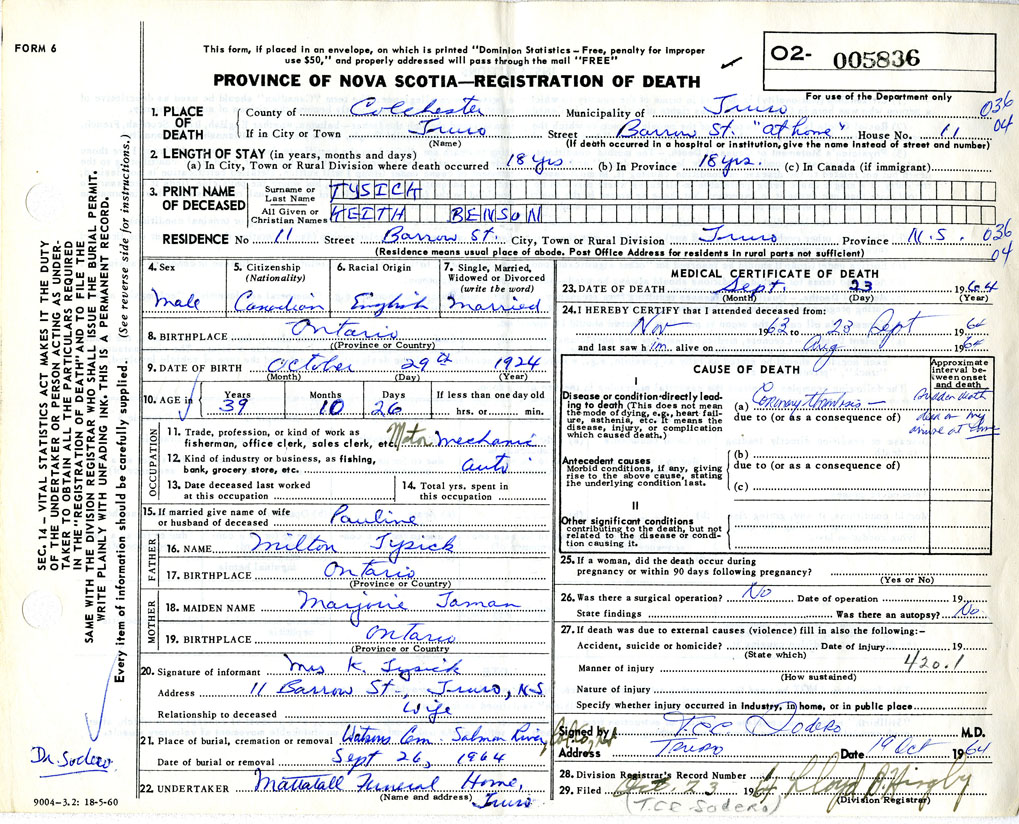 FORM 6
This form, if placed in an envelope, on which is printed "Dominion Statistics – Free, penalty for improper
use $50," and properly addressed will pass through the mail "FREE"
PROVINCE OF NOVA SCOTIA—REGISTRATION OF DEATH
O2- 005836
For use of the Department only
1. PLACE OF DEATH County of Colchester Municipality of Truro 036
If in City or Town Truro Street Barrow St. "at home" House No. 11 04
(Name) (If death occurred in a hospital or institution, give the name instead of street and number)
2. LENGTH OF STAY (in years, months and days)
(a) In City, Town or Rural Division where death occurred 18 yrs. (b) In Province 18 yrs. (c) In Canada (if immigrant)
3. PRINT NAME OF DECEASED
Surname or Last Name TYSICK
All Given or Christian Names KEITH BENSON
RESIDENCE No 11 Street Barrow St. City, Town or Rural Division Truro Province N.S. 036
(Residence means usual place of abode. Post Office Address for residents in rural parts not sufficient) 04
4. Sex Male
5. Citizenship (Nationality) Canadian
6. Racial Origin English
7. Single, Married, Widowed or Divorced (write the word) Married
8. BIRTHPLACE Ontario
(Province or Country)
9. DATE OF BIRTH October 29th 1924
(Month) (Day) (Year)
10. AGE in Years 39 Months 10 Days 26 If less than one day old
hrs. or min.
OCCUPATION
11. Trade, profession, or kind of work as
fisherman, office clerk, sales clerk, etc. Motor Mechanic
12. Kind of industry or business, as fishing,
bank, grocery store, etc. Auto
13. Date deceased last worked
at this occupation
14. Total yrs. spent in
this occupation
15. If married give name of wife
or husband of deceased Pauline
FATHER
16. NAME Milton Tysick
17. BIRTHPLACE Ontario
(Province or Country)
MOTHER
18. MAIDEN NAME Marjorie Taman
19. BIRTHPLACE Ontario
(Province or Country)
20. Signature of informant Mrs K. Tysick
Address 11 Barrow St., Truro, N.S
Relationship to deceased Wife
21. Place of burial, cremation or removal Watsons Cem. Salmon River,
Date of burial or removal Sept 26, 1964
22. UNDERTAKER Mattatall Funeral Home,
(Name and address) Truro
MEDICAL CERTIFICATE OF DEATH
23. DATE OF DEATH Sept. 23 1964
(Month) (Day) (Year)
24. I HEREBY CERTIFY that I attended deceased from:
Nov 1963 to 23 Sept 1964
and last saw him alive on Aug 1964
CAUSE OF DEATH
Approximate interval between onset and death
I
Disease or condition directly leading to death (This does not mean the mode of dying, e.g., heart failure, asthenia, etc. It means the disease, injury, or complication which caused death.)
(a) Coronary thrombosis - Sudden death
due to (or as a consequence of) dead on my
arrival at home
Antecedent causes
Morbid conditions, if any, giving rise to the above cause, stating the underlying condition last.
(b)
due to (or as a consequence of)
(c)
II
Other significant conditions
contributing to the death, but not related to the disease or condition causing it.
25. If a woman, did the death occur during
pregnancy or within 90 days following pregnancy?
(Yes or No)
26. Was there a surgical operation? No Date of operation 19
State findings Was there an autopsy? No.
27. If death was due to external causes (violence) fill in also the following:–
Accident, suicide or homicide? Date of injury 19
(State which)
Manner of injury 420.1
(How sustained)
Nature of injury
Specify whether injury occurred in Industry, in home, or in public place
Signed by T.C.C. Sodero M.D.
Address Truro Date 19 Oct 1964
28. Division Registrar's Record Number
29. Filed Oct 23 1964
(Division Registrar)
(T.C.C. Sodero)
SEC. 14 – VITAL STATISTICS ACT MAKES IT THE DUTY
OF THE UNDERTAKER OR PERSON ACTING AS UNDER-
TAKER TO OBTAIN ALL THE PARTICULARS REQUIRED
IN THE "REGISTRATION OF DEATH" AND TO FILE THE
SAME WITH THE DIVISION REGISTRAR WHO SHALL ISSUE THE BURIAL PERMIT.
WRITE PLAINLY WITH UNFADING INK. THIS IS A PERMANENT RECORD.
Every item of information should be carefully supplied. (See reverse side for instructions.)
Dr. Sodero
9004–3.2: 18-5-60